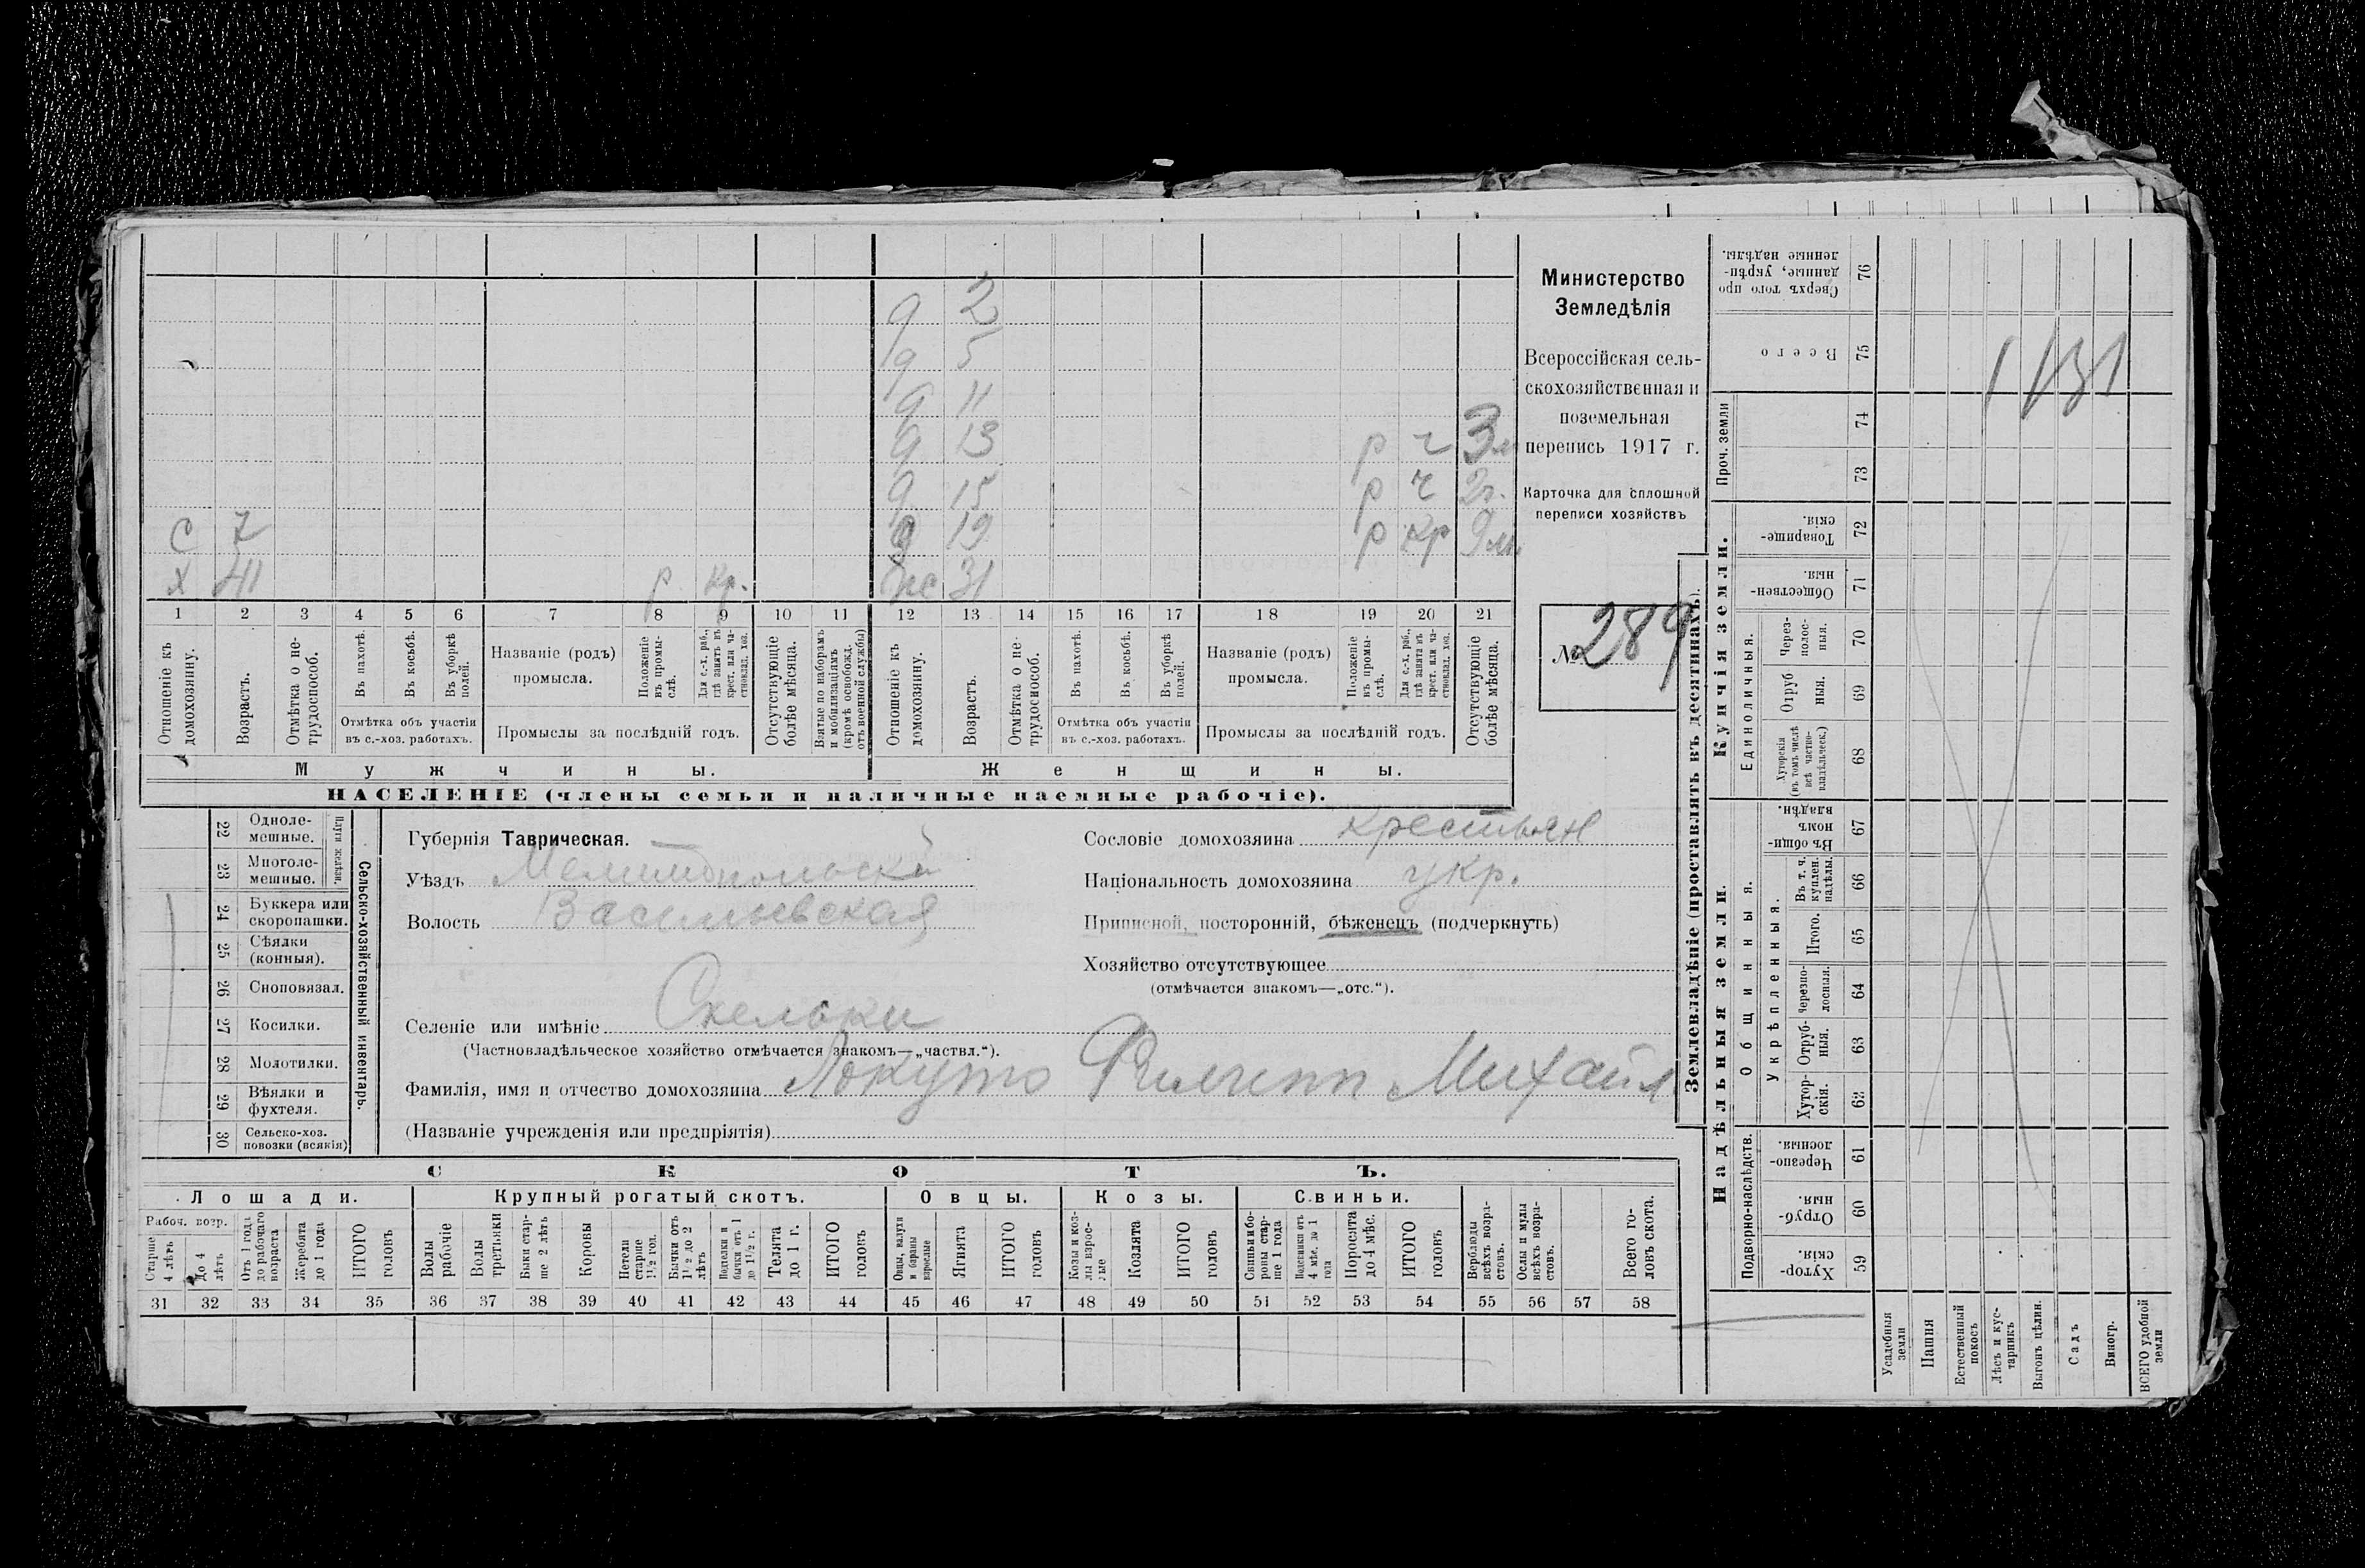 q 2
q 5
q 11
q 13 р ч 3м
q 15 р ч 2г.
с 7 q 19 р кр 9м.
х 41 р кр. жс 31
1 2 3 4 5 6 7 8 9 10 11 12 13 14 15 16 17 18 19 20 21
Отношеніе къ домохозяину.
Возрастъ.
Отмѣтка о не-трудоспособ.
Въ пахотѣ.
Въ косьбѣ.
Въ уборкѣ полей.
Отмѣтка объ участіи
въ с.-хоз. работахъ.
Названіе (родъ)
промысла.
Положеніе въ промы-слѣ.
Для с.-х. раб., гдѣ занятъ въ крест. или ча-стновлад. хоз.
Промыслы за послѣдній годъ.
Отсутствующіе болѣе мѣсяца.
Взятые по наборамъ и мобилизаціямъ (кромѣ освобожд. отъ военной службы)
Отношеніе къ домохозяину.
Возрастъ.
Отмѣтка о не-трудоспособ.
Въ пахотѣ.
Въ косьбѣ.
Въ уборкѣ полей.
Отмѣтка объ участіи
въ с.-хоз. работахъ.
Названіе (родъ)
промысла.
Положеніе въ промы-слѣ.
Для с.-х. раб., гдѣ занята въ крест. или ча-стновлад. хоз.
Промыслы за послѣдній годъ.
Отсутствующіе болѣе мѣсяца.
Мужчины. Женщины.
НАСЕЛЕНІЕ (члены семьи и наличные наемные рабочіе).
Министерство
Земледѣлія
Всероссійская сель-
скохозяйственная и
поземельная
перепись 1917 г.
Карточка для сплошной
переписи хозяйствъ
№ 289
Сельско-хозяйственный инвентарь.
Плуги желѣзн.
22 Одноле-
мешные.
23 Многоле-
мешные.
24 Буккера или
скоропашки.
25 Сѣялки
(конныя).
26 Сноповязал.
27 Косилки.
28 Молотилки.
29 Вѣялки и
фухтеля.
30 Сельско-хоз.
повозки (всякія)
Губернія Таврическая.
Уѣздъ Мелитопольскій
Волость Васильевская
Селеніе или имѣніе Скельки
(Частновладѣльческое хозяйство отмѣчается знакомъ—„частвл.“).
Фамилія, имя и отчество домохозяина Локуто Филипп Михайл
(Названіе учрежденія или предпріятія)
Сословіе домохозяина крестьян
Національность домохозяина укр.
Приписной, посторонній, бѣженецъ (подчеркнуть)
Хозяйство отсутствующее
(отмѣчается знакомъ—„отс.“).
СКОТЪ.
Лошади. Крупный рогатый скотъ. Овцы. Козы. Свиньи.
Рабоч. возр.
Старше 4 лѣтъ
До 4 лѣтъ
Отъ 1 года до рабочаго возраста
Жеребята до 1 года
ИТОГО головъ
Волы рабочіе
Волы третьяки
Быки стар-ше 2 лѣтъ
Коровы
Нетели старше 1½ год.
Бычки отъ 1½ до 2 лѣтъ
Подтелки и бычки отъ 1 до 1½ г.
Телята до 1 г.
ИТОГО головъ
Овцы, валухи и бараны взрослые
Ягнята
ИТОГО головъ
Козы и коз-лы взрос-лые
Козлята
ИТОГО головъ
Свиньи и бо-ровы стар-ше 1 года
Подсвинки отъ 4 мѣс. до 1 года
Поросята до 4 мѣс.
ИТОГО головъ
Верблюды всѣхъ возра-стовъ.
Ослы и мулы всѣхъ возра-стовъ.
Всего го-ловъ скота.
31 32 33 34 35 36 37 38 39 40 41 42 43 44 45 46 47 48 49 50 51 52 53 54 55 56 57 58
Землевладѣніе (проставлять въ десятинахъ).
Надѣльныя земли. Купчія земли.
Подворно-наслѣдств.
Общинныя.
Укрѣпленныя.
Единоличныя.
Проч. земли
76 Сверхъ того про
данные, укрѣп-
ленные надѣлы.
75 Всего
74
73
72 Товарище-
скія.
71 Обществен-
ныя.
70 Через-
полос-
ныя.
69 Отруб
ныя.
68 Хуторскія
(въ томъ числѣ
всѣ частно-
владѣльческ.)
67 Въ общин-
номъ
владѣн.
66 Въ т. ч.
куплен.
надѣлы.
65 Итого.
64 Черезпо-
лосныя.
63 Отруб-
ныя.
62 Хутор-
скія.
61 Черезпо-
лосныя.
60 Отруб-
ныя.
59 Хутор-
скія.
Усадебныя земли
Пашня
Естественный покосъ
Лѣсъ и кус-тарникъ
Выгонъ цѣлин.
Садъ
Виногр.
ВСЕГО удобной земли